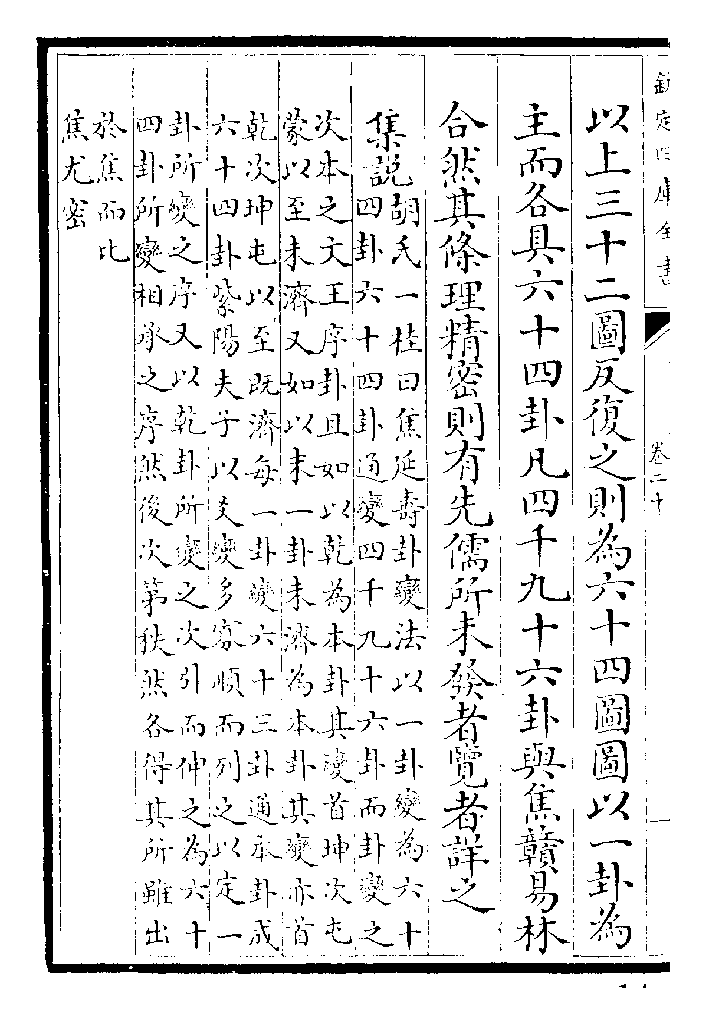 欽定四庫全書
卷二十
以上三十二圖反復之則為六十四圖圖以一卦為
主而各具六十四卦凡四千九十六卦與焦贛易林
合然其條理精密則有先儒所未發者覽者詳之
集說胡氏一桂曰焦延壽卦變法以一卦變為六十
四卦六十四卦通變四千九十六卦而卦變之
次本之文王序卦且如以乾為本卦其變首坤次屯
蒙以至未濟又如以末一卦未濟為本卦其變亦首
乾次坤屯以至既濟每一卦變六十三卦通本卦成
六十四卦紫陽夫子以爻變多寡順而列之以定一
卦所變之序又以乾卦所變之次引而伸之為六十
四卦所變相承之序然後次第秩然各得其所雖出
於焦而比
焦尤密